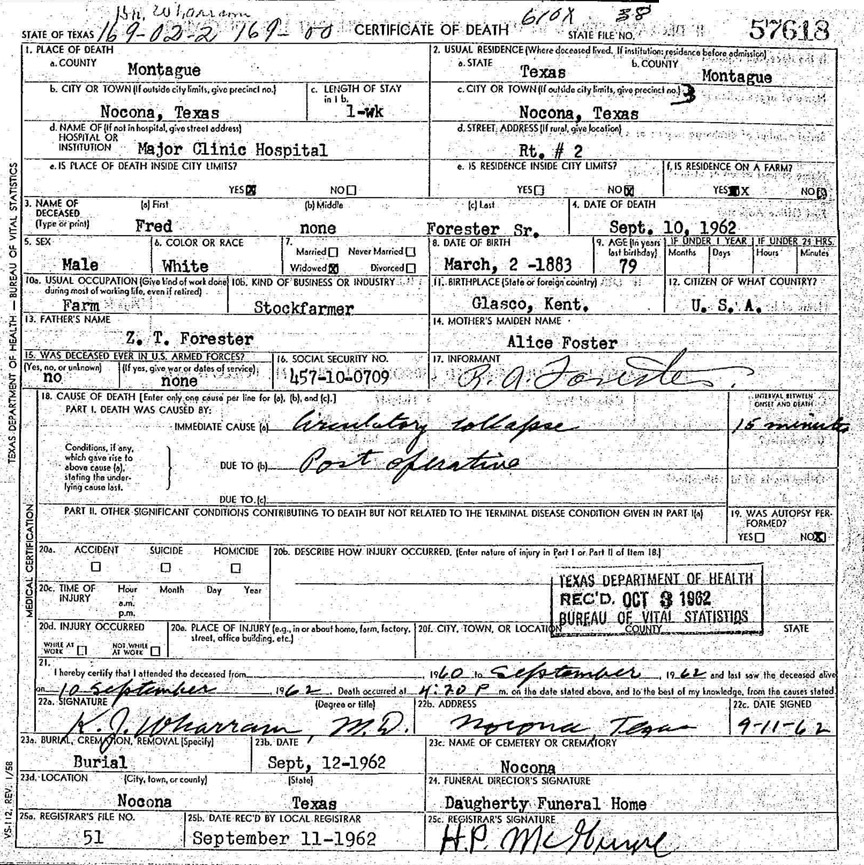 Dr. Wharram
610X 38
STATE OF TEXAS 169-02-2 169-00 CERTIFICATE OF DEATH STATE FILE NO. 57618
1. PLACE OF DEATH
a. COUNTY Montague
2. USUAL RESIDENCE (Where deceased lived. If institution: residence before admission)
a. STATE Texas b. COUNTY Montague
b. CITY OR TOWN (If outside city limits, give precinct no.) Nocona, Texas
c. LENGTH OF STAY in 1 b. 1-wk
c. CITY OR TOWN (If outside city limits, give precinct no.) 3
Nocona, Texas
d. NAME OF (If not in hospital, give street address)
HOSPITAL OR
INSTITUTION Major Clinic Hospital
d. STREET ADDRESS (If rural, give location)
Rt. # 2
e. IS PLACE OF DEATH INSIDE CITY LIMITS?
YES X NO
e. IS RESIDENCE INSIDE CITY LIMITS?
YES NO X
f. IS RESIDENCE ON A FARM?
YES X NO
3. NAME OF DECEASED
(Type or print)
(a) First (b) Middle (c) Last
Fred none Forester Sr.
4. DATE OF DEATH
Sept. 10, 1962
5. SEX
Male
6. COLOR OR RACE
White
7.
Married Never Married
Widowed X Divorced
8. DATE OF BIRTH
March, 2 -1883
9. AGE (In years last birthday)
79
IF UNDER 1 YEAR IF UNDER 24 HRS.
Months Days Hours Minutes
10a. USUAL OCCUPATION (Give kind of work done during most of working life, even if retired)
Farm
10b. KIND OF BUSINESS OR INDUSTRY
Stockfarmer
11. BIRTHPLACE (State or foreign country)
Glasco, Kent.
12. CITIZEN OF WHAT COUNTRY?
U. S. A.
13. FATHER'S NAME
Z. T. Forester
14. MOTHER'S MAIDEN NAME
Alice Foster
15. WAS DECEASED EVER IN U.S. ARMED FORCES?
(Yes, no, or unknown) (If yes, give war or dates of service)
no none
16. SOCIAL SECURITY NO.
457-10-0709
17. INFORMANT
R. A. Forester
18. CAUSE OF DEATH [Enter only one cause per line for (a), (b), and (c).]
INTERVAL BETWEEN ONSET AND DEATH
PART I. DEATH WAS CAUSED BY:
IMMEDIATE CAUSE (a) Circulatory collapse 15 minutes
Conditions, if any, which gave rise to above cause (a), stating the underlying cause last.
DUE TO (b) Post operative
DUE TO (c)
PART II. OTHER SIGNIFICANT CONDITIONS CONTRIBUTING TO DEATH BUT NOT RELATED TO THE TERMINAL DISEASE CONDITION GIVEN IN PART I(a)
19. WAS AUTOPSY PERFORMED?
YES NO X
20a. ACCIDENT SUICIDE HOMICIDE
20b. DESCRIBE HOW INJURY OCCURRED. (Enter nature of injury in Part I or Part II of Item 18.)
20c. TIME OF INJURY
Hour Month Day Year
a.m.
p.m.
TEXAS DEPARTMENT OF HEALTH
REC'D. OCT 3 1962
BUREAU OF VITAL STATISTICS
20d. INJURY OCCURRED
WHILE AT WORK NOT WHILE AT WORK
20e. PLACE OF INJURY (e.g., in or about home, farm, factory, street, office building, etc.)
20f. CITY, TOWN, OR LOCATION COUNTY STATE
21.
I hereby certify that I attended the deceased from 1960 to September, 1962 and last saw the deceased alive
on 10 September 1962. Death occurred at 4:20 P m. on the date stated above, and to the best of my knowledge, from the causes stated.
22a. SIGNATURE (Degree or title)
K. J. Wharram, M.D.
22b. ADDRESS
Nocona, Texas
22c. DATE SIGNED
9-11-62
23a. BURIAL, CREMATION, REMOVAL (Specify)
Burial
23b. DATE
Sept, 12-1962
23c. NAME OF CEMETERY OR CREMATORY
Nocona
23d. LOCATION (City, town, or county) (State)
Nocona Texas
24. FUNERAL DIRECTOR'S SIGNATURE
Daugherty Funeral Home
25a. REGISTRAR'S FILE NO.
51
25b. DATE REC'D BY LOCAL REGISTRAR
September 11-1962
25c. REGISTRAR'S SIGNATURE
H.P. McGuire
TEXAS DEPARTMENT OF HEALTH — BUREAU OF VITAL STATISTICS
MEDICAL CERTIFICATION
VS-112, REV. 1/58